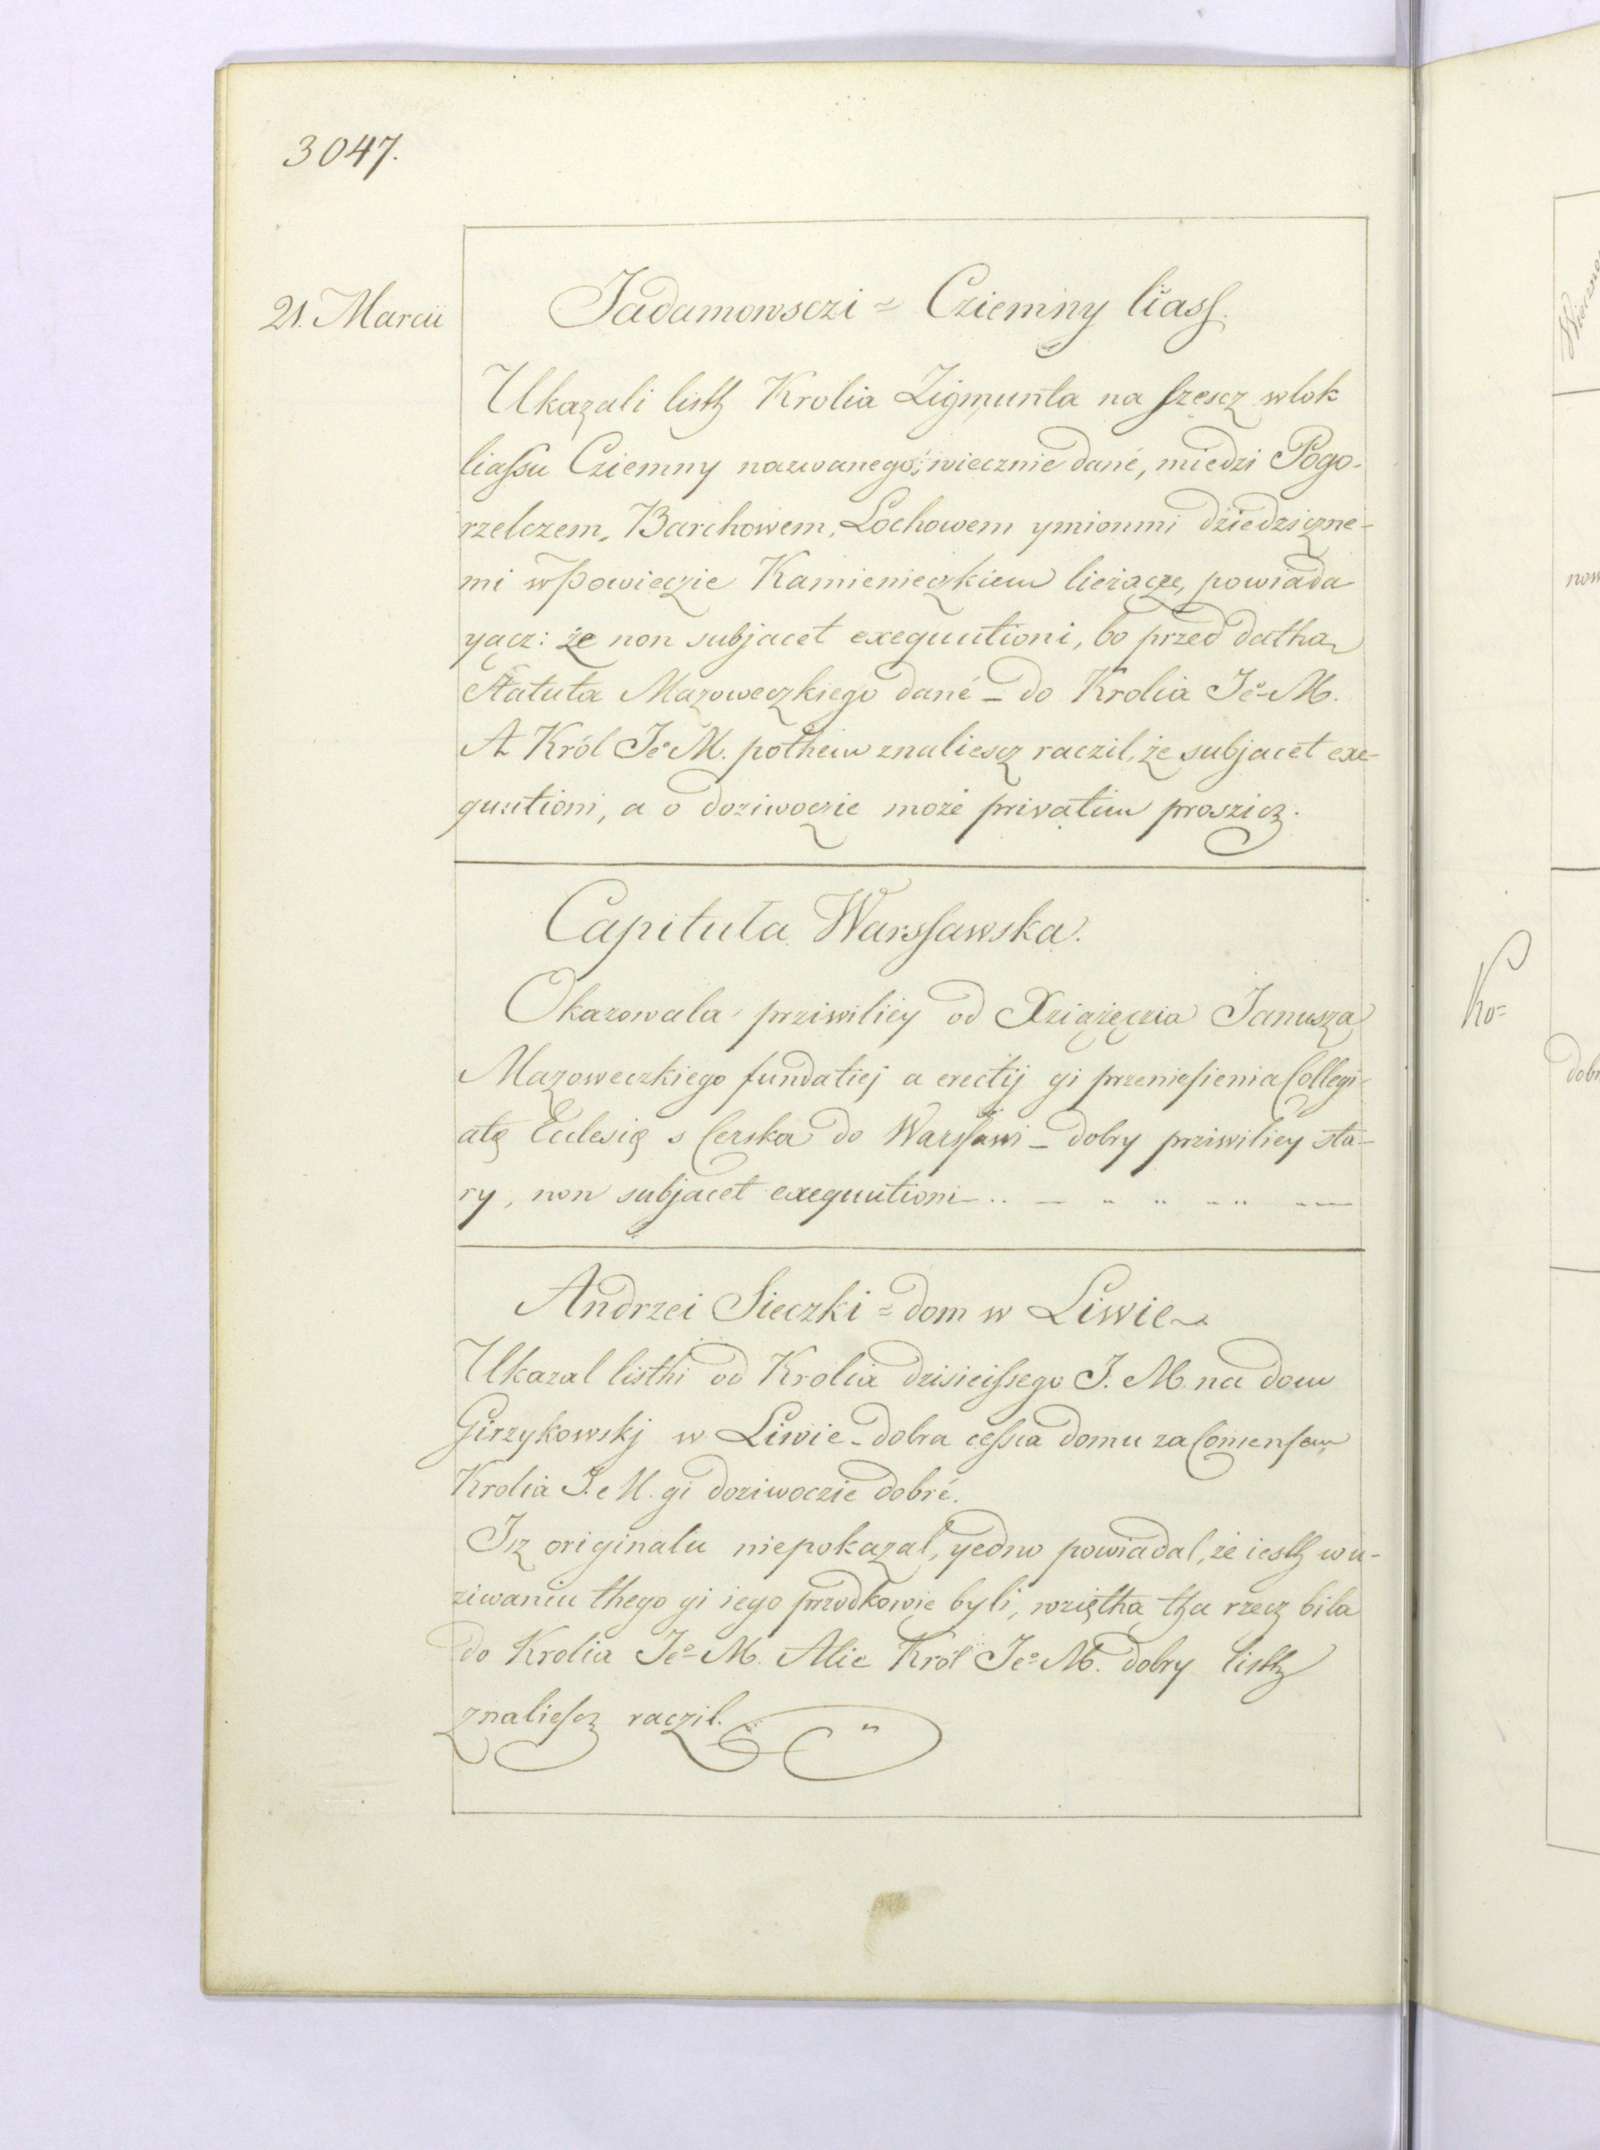 3047.
21. Marcii
Jadamowsczi = Cziemny liass.
Ukazali listh Krolia Zigmunta na sszescz wlok
liassu Cziemny nazwanego, wiecznie dané, miedzi Pogo-
rzelczem, Barchowem, Lochowem ymionmi dziedziczne-
mi w Powieczie Kamienieczkiem lieżącze, powiada
yącz: że non subjacet exequutioni, bo przed datha
Statuta Mazoweczkiego dané – do Krolia Je°M.
A Król Je°M. pothem znaliescz raczil, że subjacet exe-
quutioni, a o doziwoczie może privatim proszicz.
Capituła Warssawska.
Okazowala prziwiliey od Xziążęczia Janusza
Mazoweczkiego fundatiej a erectij gi przeniesienia Collegi-
atę Eclesię s Cerska do Warssawi – dobry prziwiliey sta-
ry, non subjacet exequutioni
Andrzei Sieczki = dom w Liwie
Ukazal listhi od Krolia dzisieissego J. M. na dom
Girzykowskj w Liwie – dobra cessia domu za Consensem
Krolia J. M. gi doziwoczié dobré.
Iz originalu niepokazal, yedno powiadal, że iesth w u-
ziwaniu thego gi iego przodkowie byli, wziętha tha rzecz bila
do Krolia Je°M. Alie Król Je°M. dobry listh
znaliescz raczil.
now
Ko=
dobr